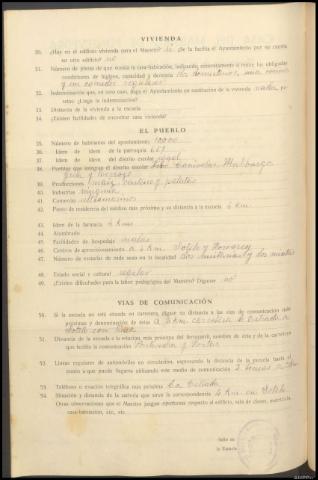 VIVIENDA
30. ¿Hay en el edificio vivienda para el Maestro? si de la facilita el Ayuntamiento por su cuenta
en otro edificio? no
31. Número de piezas de que consta la casa-habitación, indicando someramente si reúne las obligadas
condiciones de higiene, capacidad y decencia dos dormitorios, una cocina
y un comedor regulares
32. Indemnización que, en otro caso, daga el Ayuntamiento en sustitución de la vivienda nada pe-
setas. ¿Paga la indemnización?
33. Distancia de la vivienda a la escuela
34. ¿Existen facilidades de encontrar una vivienda?
EL PUEBLO
35. Número de habitantes del ayuntamiento 10000
36. Idem de ídem de la parroquia 667
37. Idem de ídem del distrito escolar igual
38. Pueblos que integran el distrito escolar
39. Producciones maiz centeno y patatas
40. Industrias ninguna
41. Comercio ultramarinos
42. Punto de residencia del médico más próximo y su distancia a la escuela 6 km
43. Idem de la farmacia 6 kms
44. Alumbrado
45. Facilidades de hospedaje malas
46. Centros de aprovisionamiento a 4 Km. Sotelo y
47. Número de escuelas de cada sexo en la localidad dos unitarias y dos mixtas
48. Estado social y cultural regular
49. ¿Existen dificultades para la labor pedagógica del Maestro? Dígase no
VIAS DE COMUNICACIÓN
50. Si la escuela no está situada en carretera, dígase su distancia a las vías de comunicación más
próximas y denominación de éstas a 4 km carretera de Estrada a
51. Distancia de la escuela a la estación más próxima del ferrocarril, nombre de ésta y de la carretera
que facilita la comunicación
52. Líneas regulares de automóviles en circulación, expresando la distancia de la escuela hasta el
punto a que puede llegarse utilizando este medio de comunicación
53. Teléfono o estación telegráfica más próxima La Estrada
54. Situación y distancia de la estafeta que sirve la correspondencia 4 km en Sotelo
Otras observaciones que el Maestro juzgue oportunas respecto al edificio, sala de clases, matrícula,
casa-habitación, etc., etc.
Sello de
la Escuela